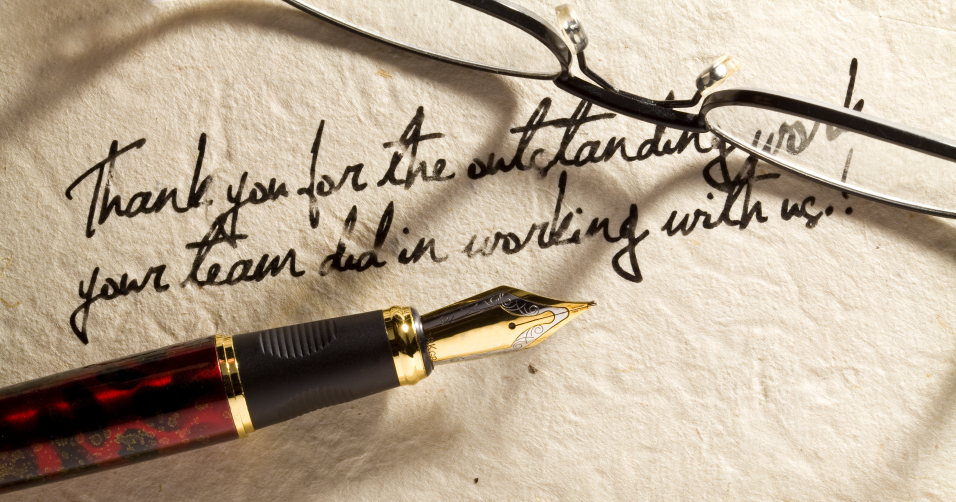 Thank you for the outstanding work
your team did in working with us!